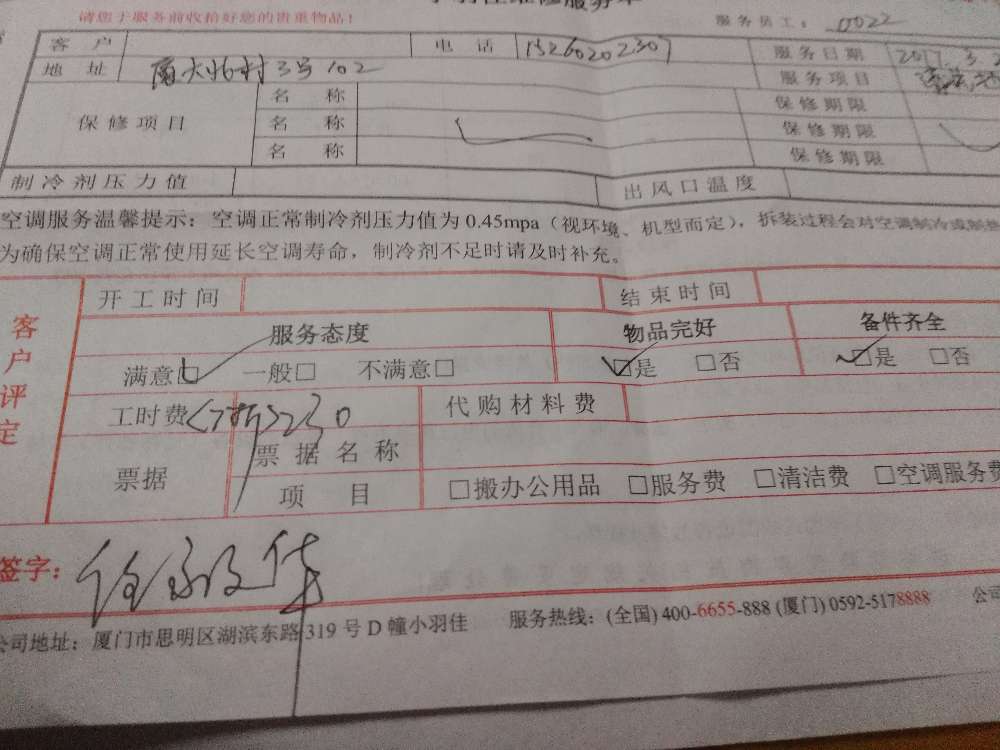 请您于服务前收拾好您的贵重物品！
服务员工： 0022
客 户 电 话 15260202307 服务日期 2017.3.2
地 址 3号102 服务项目
保修项目 名 称 保修期限
名 称 保修期限
名 称 保修期限
制冷剂压力值 出风口温度
空调服务温馨提示：空调正常制冷剂压力值为 0.45mpa（视环境、机型而定），拆装过程会对空调制冷或制热
为确保空调正常使用延长空调寿命，制冷剂不足时请及时补充。
客户评定
开工时间 结束时间
服务态度 物品完好 备件齐全
满意□ 一般□ 不满意□ □是 □否 □是 □否
工时费 230 代购材料费
票据 票据名称
项 目 □搬办公用品 □服务费 □清洁费 □空调服务费
签字：
公司地址：厦门市思明区湖滨东路 319 号 D 幢小羽佳 服务热线：(全国) 400-6655-888 (厦门) 0592-5178888 公司